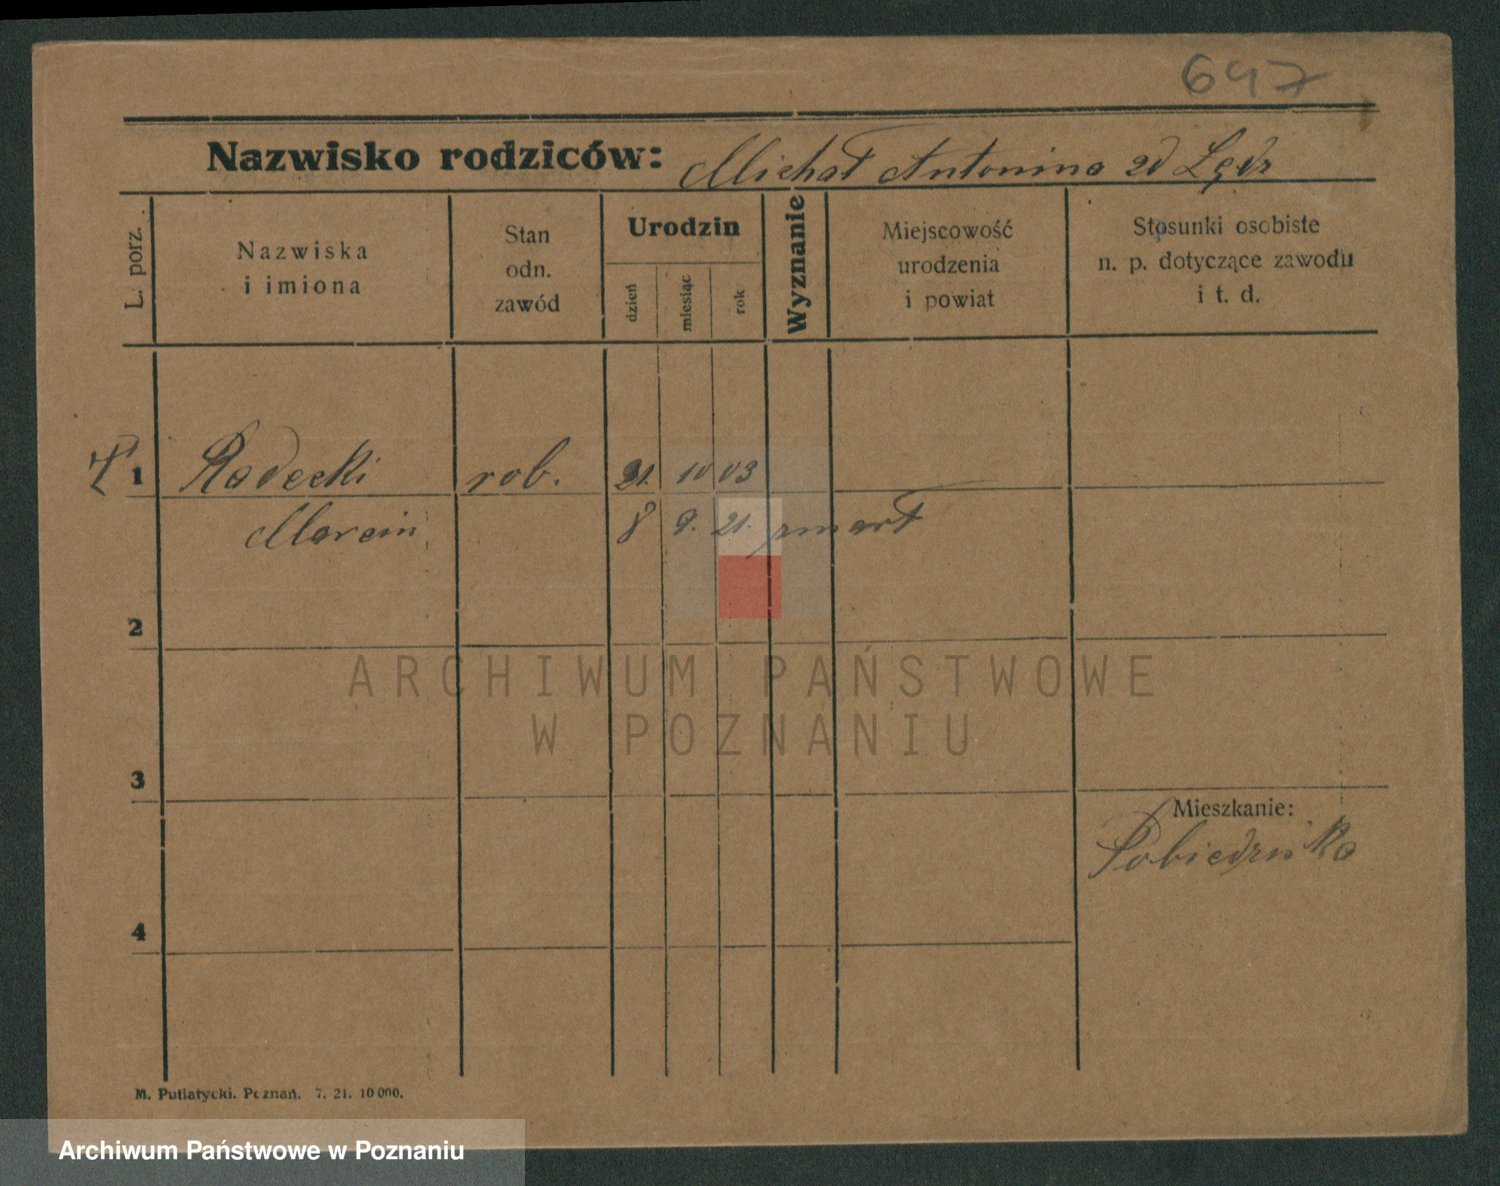 647
Nazwisko rodziców: Michał Antonina zd Lędz
L. porz.
Nazwiska
i imiona
Stan
odn.
zawód
Urodzin
dzień
miesiąc
rok
Wyznanie
Miejscowość
urodzenia
i powiat
Stosunki osobiste
n. p. dotyczące zawodu
i t. d.
1 Radecki rob. 21. 10 03
Marcin 8 9. 21. zmart
2
ARCHIWUM PAŃSTWOWE
W POZNANIU
3
Mieszkanie:
Pobiedziska
4
M. Putiatycki. Poznań. 7. 21. 10 000.
Archiwum Państwowe w Poznaniu